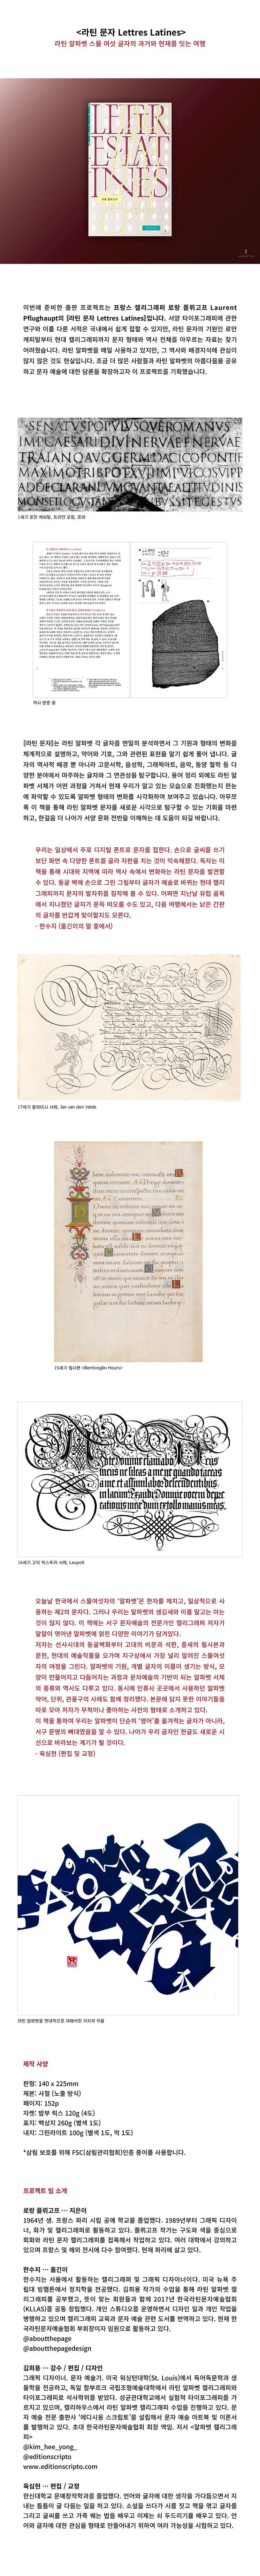 <라틴 문자 Lettres Latines>
라틴 알파벳 스물 여섯 글자의 과거와 현재를 잇는 여행
LETTR
ESLAT
INES
이번에 준비한 출판 프로젝트는 프랑스 캘리그래퍼 로랑 플뤼고프 Laurent
Pflughaupt의 [라틴 문자 Lettres Latines]입니다. 서양 타이포그래피에 관한
연구와 이를 다룬 서적은 국내에서 쉽게 접할 수 있지만, 라틴 문자의 기원인 로만
캐피탈부터 현대 캘리그래피까지 문자 형태와 역사 전체를 아우르는 자료는 찾기
어려웠습니다. 라틴 알파벳을 매일 사용하고 있지만, 그 역사와 배경지식에 관심이
많지 않은 것도 현실입니다. 조금 더 많은 사람들과 라틴 알파벳의 아름다움을 공유
하고 문자 예술에 대한 담론을 확장하고자 이 프로젝트를 기획했습니다.
SENATVSPOPVLVSQVEROMANVS
IMPCAESARIDIVINERVAEFNERVAE
TRAIANOAVGGERMDACICOPONTIF
MAXIMOTRIBPOTXVIIIMPVICOSVIPP
ADDECLARANDVMQVANTAEALTITVDINIS
1세기 로만 캐피탈, 트라얀 표필, 로마
역사 본문 중
[라틴 문자]는 라틴 알파벳 각 글자를 면밀히 분석하면서 그 기원과 형태의 변화를
체계적으로 설명하고, 약어와 기호, 그와 관련된 표현을 알기 쉽게 풀어 냅니다. 글
자의 역사적 배경 뿐 아니라 고문서학, 음성학, 그래픽아트, 음악, 동양 철학 등 다
양한 분야에서 마주하는 글자와 그 연관성을 탐구합니다. 용어 정리 외에도 라틴 알
파벳 서체가 어떤 과정을 거쳐서 현재 우리가 알고 있는 모습으로 진화했는지 한눈
에 파악할 수 있도록 알파벳 형태의 변화를 시각화하여 보여주고 있습니다. 아무쪼
록 이 책을 통해 라틴 알파벳 문자를 새로운 시각으로 탐구할 수 있는 기회를 마련
하고, 한걸음 더 나아가 서양 문화 전반을 이해하는 데 도움이 되길 바랍니다.
우리는 일상에서 주로 디지털 폰트로 문자를 접한다. 손으로 글씨를 쓰기
보단 화면 속 다양한 폰트를 골라 자판을 치는 것이 익숙해졌다. 독자는 이
책을 통해 시대와 지역에 따라 역사 속에서 변화하는 라틴 문자를 발견할
수 있다. 동굴 벽에 손으로 그린 그림부터 글자가 예술로 바뀌는 현대 캘리
그래피까지 문자의 발자취를 짐작해 볼 수 있다. 어쩌면 지난날 유럽 골목
에서 지나쳤던 글자가 문득 떠오를 수도 있고, 다음 여행에서는 낡은 간판
의 글자를 반갑게 맞이할지도 모른다.
- 한수지 (옮긴이의 말 중에서)
17세기 플레미시 서체, Jan van den Velde
15세기 필사본 <Bentivoglio Hours>
16세기 고딕 텍스투라 서체, Leupolt
오늘날 한국에서 스물여섯자의 '알파벳'은 한자를 제치고, 일상적으로 사
용하는 제2의 문자다. 그러나 우리는 알파벳의 생김새와 이름 말고는 아는
것이 많지 않다. 이 책에는 서구 문자예술의 전문가인 캘리그래퍼 저자가
알알이 엮어낸 알파벳에 얽힌 다양한 이야기가 담겨있다.
저자는 선사시대의 동굴벽화부터 고대의 비문과 석판, 중세의 필사본과
문헌, 현대의 예술작품을 오가며 지구상에서 가장 널리 알려진 스물여섯
자의 여정을 그린다. 알파벳의 기원, 개별 글자의 이름이 생기는 방식, 모
양이 만들어지고 다듬어지는 과정과 문자예술의 기반이 되는 알파벳 서체
의 종류와 역사도 다루고 있다. 동시에 인류사 곳곳에서 사용하던 알파벳
약어, 단위, 관용구의 사례도 함께 정리했다. 본문에 담지 못한 이야기들을
따로 모아 저자가 무척이나 좋아하는 사전의 형태로 소개하고 있다.
이 책을 통하여 우리는 알파벳이 단순히 '영어'를 옮겨적는 글자가 아니라,
서구 문명의 뼈대였음을 알 수 있다. 나아가 우리 글자인 한글도 새로운 시
선으로 바라보는 계기가 될 것이다.
- 육심현 (편집 및 교정)
라틴 알파벳을 현대적으로 재해석한 저자의 작품
제작 사양
판형: 140 x 225mm
제본: 사철 (노출 방식)
페이지: 152p
자켓: 밤부 럭스 120g (4도)
표지: 백상지 260g (별색 1도)
내지: 그린라이트 100g (별색 1도, 먹 1도)
*삼림 보호를 위해 FSC(삼림관리협회)인증 종이를 사용합니다.
프로젝트 팀 소개
로랑 플뤼고프 … 지은이
1964년 생. 프랑스 파리 시립 공예 학교를 졸업했다. 1989년부터 그래픽 디자이
너, 화가 및 캘리그래퍼로 활동하고 있다. 플뤼고프 작가는 구도와 색을 중심으로
회화와 라틴 문자 캘리그래피를 접목해서 작업하고 있다. 여러 대학에서 강의하고
있으며 프랑스 및 해외 전시에 다수 참여했다. 현재 파리에 살고 있다.
한수지 … 옮긴이
한수지는 서울에서 활동하는 캘리그래퍼 및 그래픽 디자이너이다. 미국 뉴욕 주
립대 빙햄튼에서 정치학을 전공했다. 김희용 작가의 수업을 통해 라틴 알파벳 캘
리그래피를 공부했고, 뜻이 맞는 회원들과 함께 2017년 한국라틴문자예술협회
(KLLAS)를 공동 창립했다. 개인 스튜디오를 운영하면서 디자인 일과 개인 작업을
병행하고 있으며 캘리그래피 교육과 문자 예술 관련 도서를 번역하고 있다. 현재 한
국라틴문자예술협회 부회장이자 임원으로 활동하고 있다.
@aboutthepage
@aboutthepagedesign
김희용 … 감수 / 편집 / 디자인
그래픽 디자이너. 문자 예술가. 미국 워싱턴대학(St. Louis)에서 독어독문학과 생
물학을 전공하고, 독일 함부르크 국립조형예술대학에서 라틴 알파벳 캘리그래피와
타이포그래피로 석사학위를 받았다. 성균관대학교에서 실험적 타이포그래피를 가
르치고 있으며, 캘리하우스에서 라틴 알파벳 캘리그래피 수업을 진행하고 있다. 문
자 예술 전문 출판사 '에디시옹 스크립토'를 설립해서 문자 예술 아트북 및 이론서
를 발행하고 있다. 초대 한국라틴문자예술협회 회장 역임. 저서 <알파벳 캘리그래
피>
@kim_hee_yong_
@editionscripto
www.editionscripto.com
육심현 … 편집 / 교정
한신대학교 문예창작학과를 졸업했다. 언어와 글자에 대한 생각을 가다듬으면서 지
내는 틈틈이 글 다듬는 일을 하고 있다. 소설을 쓰다가 시를 짓고 책을 엮고 글자를
그리고 글씨를 쓰고 가죽 꿰는 법을 배우고 이제는 쇠 두드리기를 배우고 있다. 언
어와 글자에 대한 관심을 형태로 만들어내기 위하여 여러 가능성을 시험하고 있다.